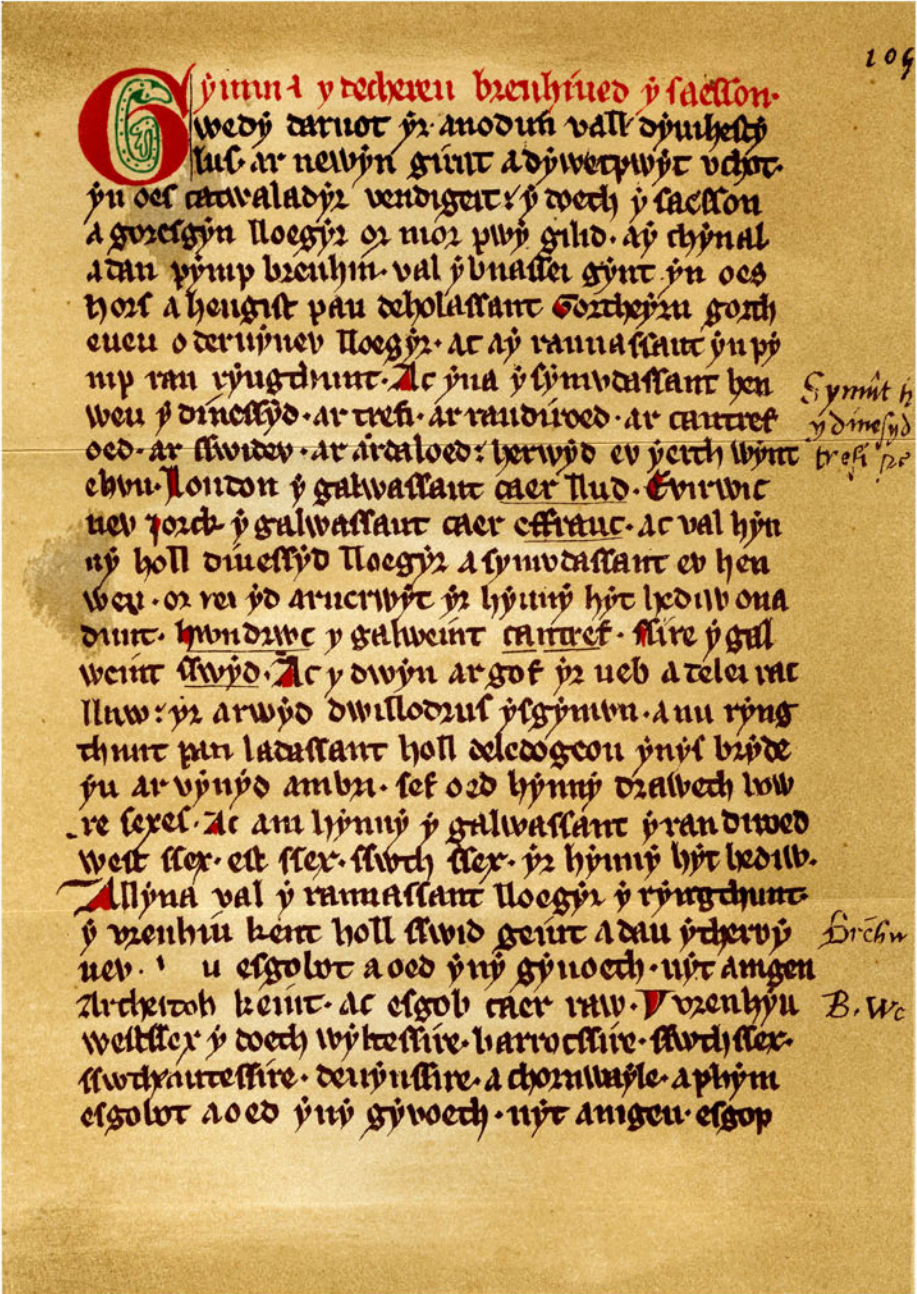 109
ẏmma y decheren brenhined ẏ saesson·
Gwedẏ daruot ẏr anodun vall dẏmhestẏ
lus· ar newẏn girat a dẏwetpwẏt vchot·
ẏn oes catwaladẏr vendigeit: ẏ doeth ẏ saesson
a goresgẏn lloegẏr or mor pwẏ gilid· aẏ chẏnal
adan pẏmp brenhin· val ẏ buassei gẏnt ẏn oes
hors a hengist pan deholassant Gortheẏrn gorth
eueu o deruẏnev lloegẏr· ac aẏ rannassant ẏn pẏ
mp ran rẏngthunt· Ac ẏna ẏ sẏmvdassant hen
weu ẏ dinessẏd· ar trefi· ar randiroed· ar cantref
oed· ar sswidev· ar ardaloed: herwẏd ev ẏeith wẏnt
ehvn· London ẏ galwassant caer llud· Evirwic
nev Iorck ẏ galwassant caer effrauc· ac val hẏn
nẏ holl dinessẏd lloegẏr a symvdassant ev hen
weu· or rei ẏd arucrwẏt ẏr hẏnnẏ hẏt hediw ona
dunt· hwndrwc y galweint cantref· ssire ẏ gal
weint sswẏd· Ac y dwẏn ar gof ẏr neb a delei rac
llaw: ẏr arwẏd dwillodrus ẏsgẏmvn· a uu rẏng
thunt pan ladassant holl deledogeon ẏnẏs brẏde
ẏn ar vẏnẏd ambri· sef oed hẏnnẏ draweth bvw
re sexes· Ac am hẏnnẏ ẏ galwassant ẏ randiroed
west ssex· est ssex· sswth ssex· ẏr hẏnnẏ hẏt hediw·
Allẏna val ẏ rannassant lloegẏr ẏ rẏngthunt·
ẏ vrenhin kent holl sswid geint adan ẏ thervẏ
nev· u esgobvt a oed ẏnẏ gẏuoeth· nẏt amgen
Archescob keint· ac esgob caer raw· Y vrenhẏn
westssex ẏ doeth wẏltessire· barrocssire· sswthssex·
sswthamtessire· deuẏnssire· a chornwayle· a phẏm
esgobvt a oed ẏnẏ gẏvoeth· nẏt amgen· esgop
Symût h
y dinesyd
trefi
Brēhn
B. We